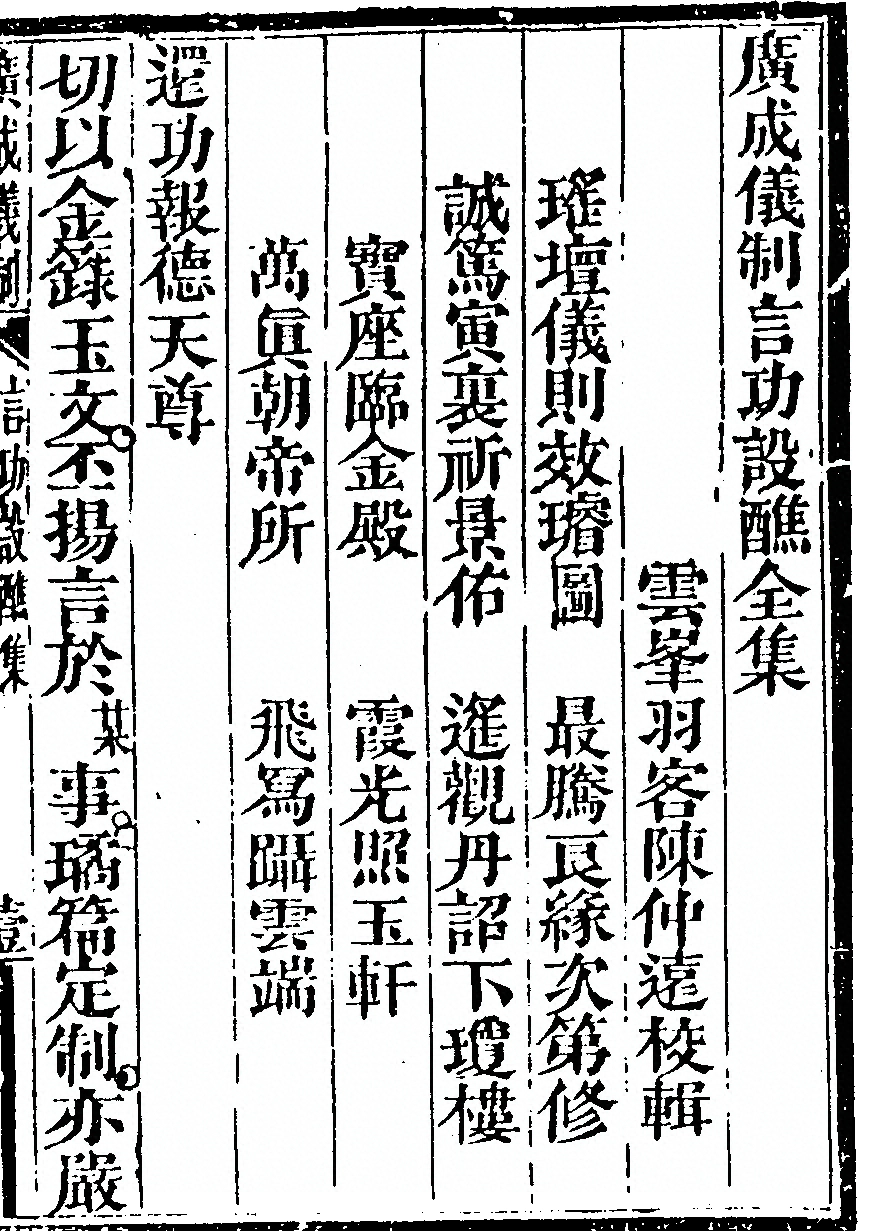 廣成儀制言功設醮全集
雲峯羽客陳仲遠校輯
瑤壇儀則效璿圖　最騰良緣次第修
誠篤寅衷祈景佑　遙觀丹詔下瓊樓
寶座臨金殿　霞光照玉軒
萬眞朝帝所　飛舄躡雲端
還功報德天尊
切以金籙玉文。丕揚言於某事。璚篇定制。亦嚴
廣成儀制　言功設醮集　壹